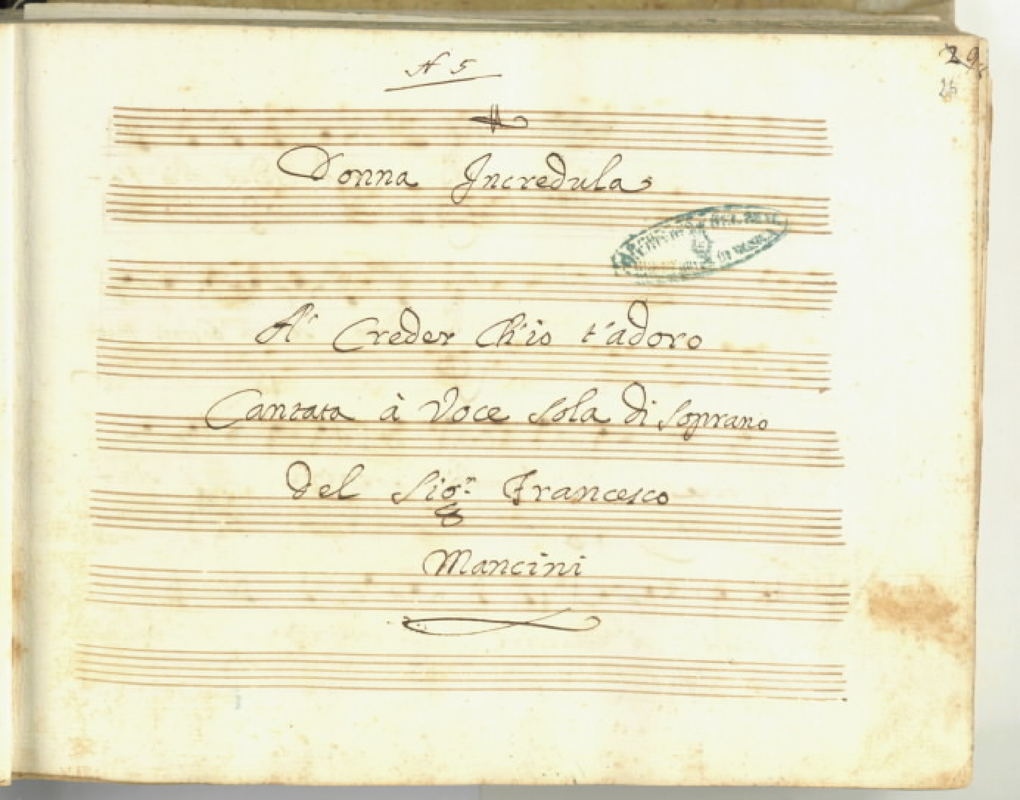 A 5
29
26
Donna Incredula
A' Creder Ch'io t'adoro
Cantata à Voce Sola di Soprano
del Sig.r Francesco
Mancini